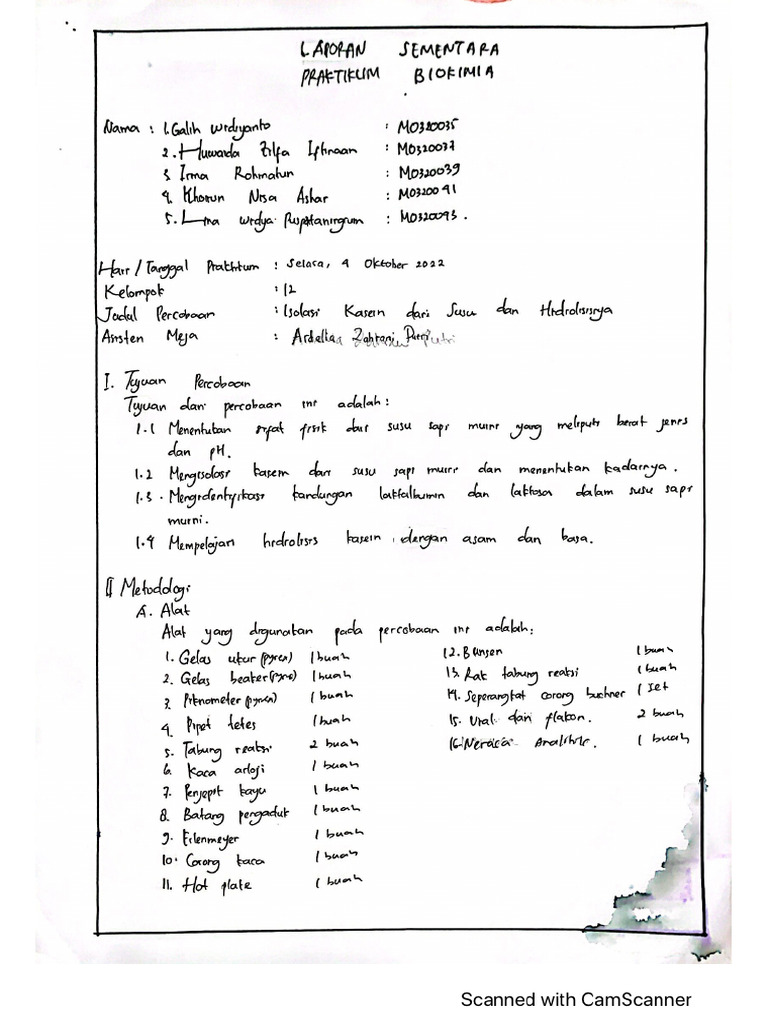 LAPORAN SEMENTARA
PRAKTIKUM BIOKIMIA
Nama : 1. Galih Widiyanto : M0320035
2. Huwaida Zilfa Iftinaan : M0320037
3. Irma Rohmatun : M0320039
4. Khoirun Nisa Ashar : M0320041
5. Lina Widya Puspitaningrum : M0320043.
Hari / Tanggal Praktikum : Selasa, 4 Oktober 2022
Kelompok : 12
Judul Percobaan : Isolasi Kasein dari Susu dan Hidrolisisnya
Asisten Meja : Ardelia Zahrani Putri
I. Tujuan Percobaan
Tujuan dari percobaan ini adalah :
1.1 Menentukan sifat fisik dari susu sapi murni yang meliputi berat jenis
dan pH.
1.2 Mengisolasi kasein dari susu sapi murni dan menentukan kadarnya.
1.3 Mengidentifikasi kandungan laktalbumin dan laktosa dalam susu sapi
murni.
1.4 Mempelajari hidrolisis kasein dengan asam dan basa.
II Metodologi
A. Alat
Alat yang digunakan pada percobaan ini adalah:
1. Gelas ukur (pyrex) 1 buah
2. Gelas beaker (pyrex) 1 buah
3. Piknometer (pyrex) 1 buah
4. Pipet tetes 1 buah
5. Tabung reaksi 2 buah
6. Kaca arloji 1 buah
7. Penjepit kayu 1 buah
8. Batang pengaduk 1 buah
9. Erlenmeyer 1 buah
10. Corong kaca 1 buah
11. Hot plate 1 buah
12. Bunsen 1 buah
13. Rak tabung reaksi 1 buah
14. Seperangkat corong buchner 1 set
15. Vial dan flakon. 2 buah
16. Neraca Analitik. 1 buah
Scanned with CamScanner